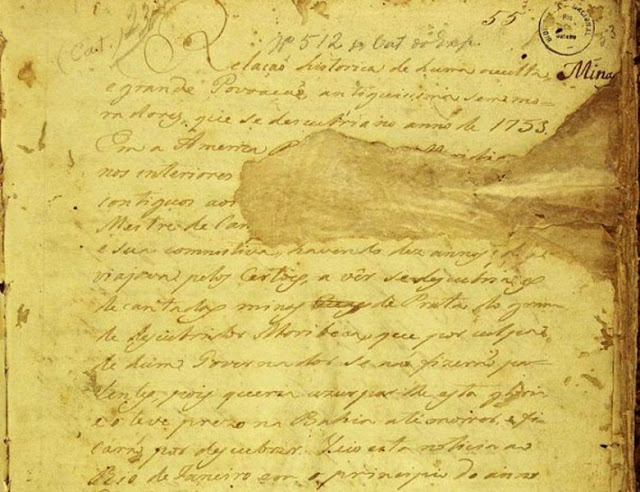 55
(Cat. 
Nº 512 do Cat. da Exp.
Relação historica de huma occulta,
Minas
e grande Povoação antiquissima sem mo-
radores, que se descubriu no anno de 1753.
Em a America
nos interiores
contiguos aos
Mestre de Can
e sua comitiva, havendo dez annos, que
viajava pelos Certões, a vêr se descubria as
decantadas minas de Prata do gran-
de descubridor Moribeca, que por culpa
de hum Governador se não fizerão pa-
tentes, pois queria uzurpar lhe esta gloria
e o teve prezo na Bahia até morrer, e fi-
carão por descubrir. Veio esta noticia ao
Rio de Janeiro em o principio do anno